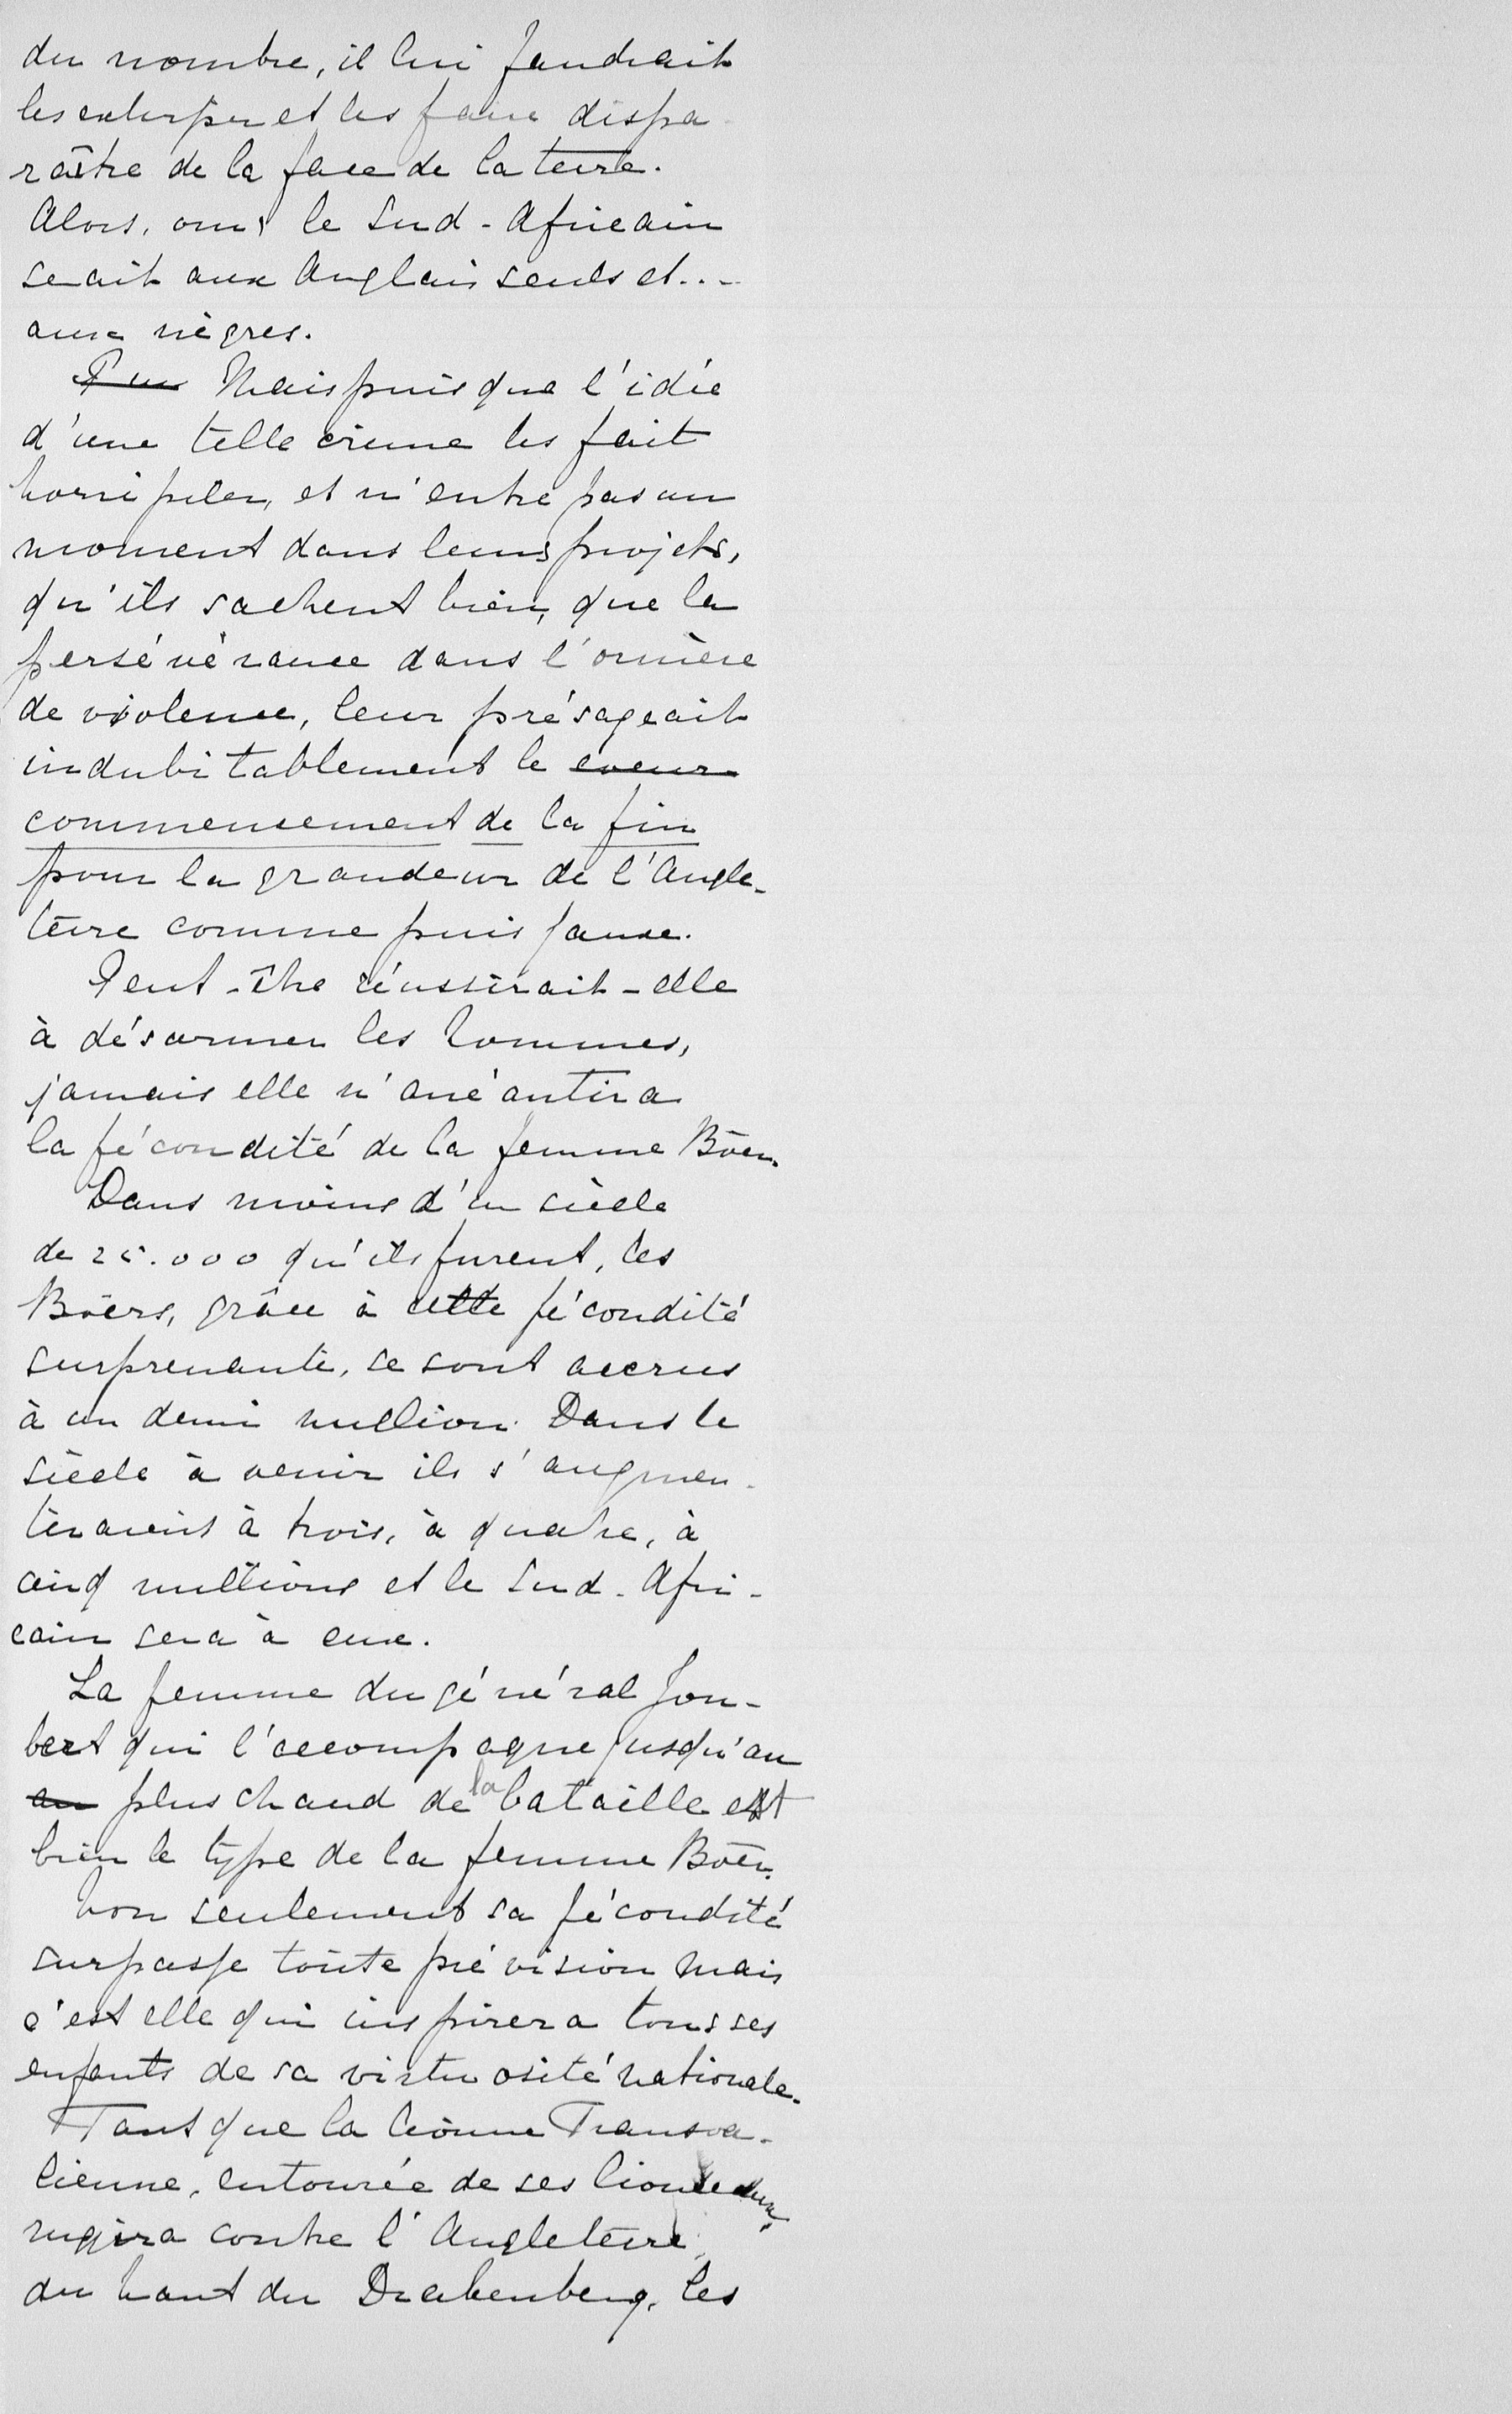 du nombre, il lui faudrait
les extirper et les faire dispa-
raître de la face de la terre.
Alors, oui le Sud-Africain
serait aux Anglais seuls et...
aux nègres.
Mais puisque l'idée
d'une telle crime les fait
horripiler, et n'entre pas un
moment dans leurs projets,
qu'ils sachent bien, que la
persévérance dans l'ornière
de violence, leur présageait
indubitablement le
commencement de la fin
pour la grandeur de l'Angle-
terre comme puissance.
Peut-être réussirait-elle
à désarmer les hommes,
jamais elle n'anéantira
la fécondité de la femme Boër.
Dans moins d'un siècle
de 25.000 qu'ils furent, les
Boërs, grâce à cette fécondité
surprenante, se sont accrus
à un demi million. Dans le
siècle à venir ils s'augmen-
teraient à trois, à quatre, à
cinq millions et le Sud-Afri-
cain sera à eux.
La femme du général Jou-
bert qui l'accompagne jusqu'au
au plus chaud de la bataille est
bien le type de la femme Boër.
Non seulement sa fécondité
surpasse toute prévision mais
c'est elle qui inspirera tous ses
enfants de sa virtuosité nationale.
Tant que la lionne Transva-
lienne, entourée de ses lionceaux,
rugira contre l'Angleterre
du haut du Drakenberg, les